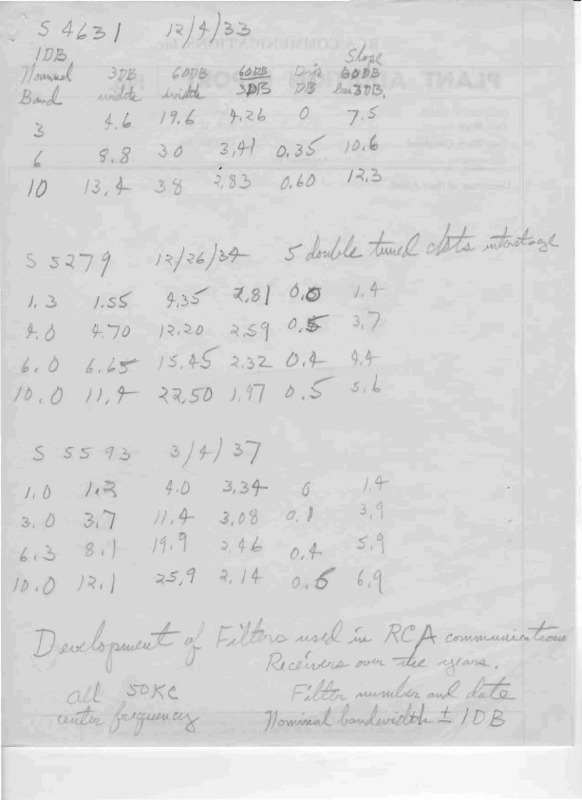 S 4631 12/4/33
1DB Slope
Nominal 3DB 60DB 60DB Dip 60DB
Band width width 3DB DB less 3DB.
3 4.6 19.6 4.26 0 7.5
6 8.8 30 3,41 0.35 10.6
10 13.4 38 2.83 0.60 12.3
S 5279 12/26/34 5 double tuned ckts interstage
1.3 1.55 4.35 2.81 0.0 1.4
4.0 4.70 12.20 2.59 0.5 3.7
6.0 6.65 15.45 2.32 0.4 4.4
10.0 11.4 22,50 1.97 0.5 5.6
S 5593 3/4/37
1.0 1.2 4.0 3,34 0 1.4
3.0 3.7 11.4 3,08 0.1 3.9
6.3 8.1 19.9 2.46 0.4 5.9
10.0 12.1 25.9 2.14 0.6 6.9
Development of Filters used in RCA communications
Receivers over the years.
all 50KC Filter number and date
center frequency Nominal bandwidth ± 1DB